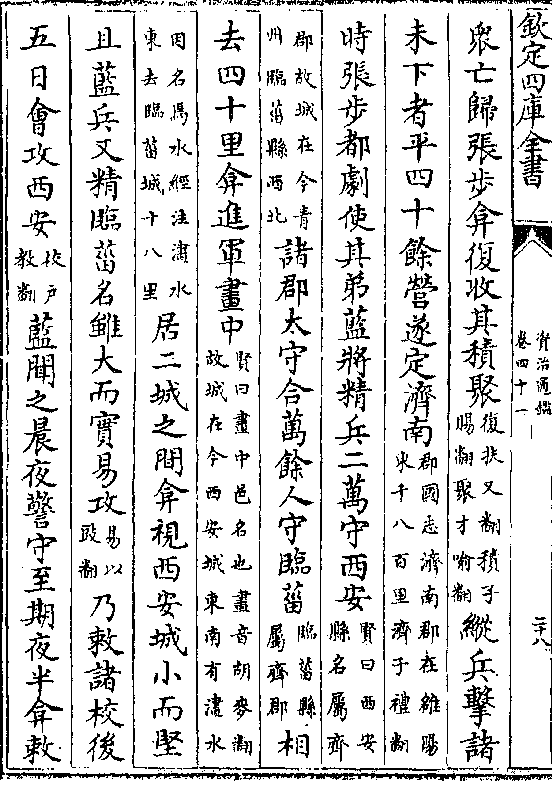 欽定四庫全書
資治通鑑
卷四十一
二十八
衆亡歸張步弇復收其積聚復扶又翻積子賜翻聚才喻翻縱兵擊諸
未下者平四十餘營遂定濟南郡國志濟南郡在雒陽東千八百里濟子禮翻
時張步都劇使其弟藍將精兵二萬守西安賢曰西安縣名屬齊
郡故城在今青州臨菑縣西北諸郡太守合萬餘人守臨菑臨菑縣屬齊郡相
去四十里弇進軍畫中賢曰畫中邑名也畫音胡麥翻故城在今西安城東南有澅水
因名焉水經注澅水東去臨菑城十八里居二城之間弇視西安城小而堅
且藍兵又精臨菑名雖大而實易攻易以豉翻乃敕諸校後
五日會攻西安校戶教翻藍聞之晨夜警守至期夜半弇敕